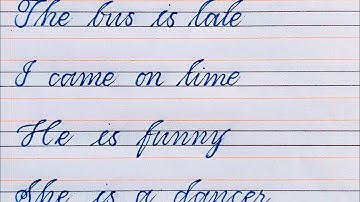 The bus is late
I came on time
He is funny
She is a dancer